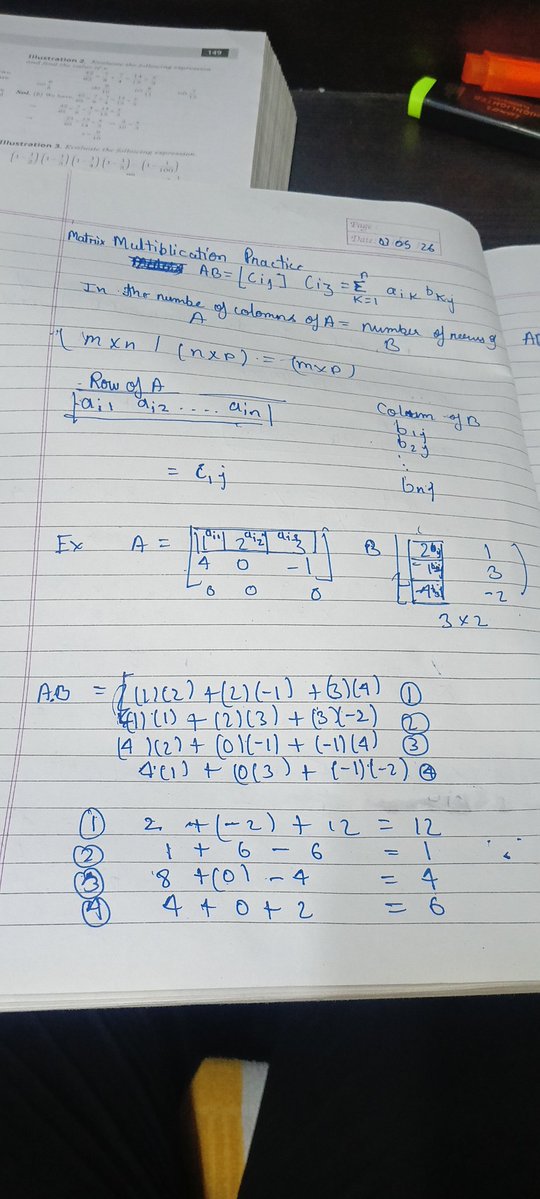 149
Illustration 2. Evaluate the following expression
and find the value
Sol. (b) We have,
Illustration 3. Evaluate the following expression
Page:
Date: 03 05 26
Matrix Multiblication Practice
AB = [Cij] Cij = Σ n K=1 aik bkj
In the numbe of colomns of A = number of rows of
A B
( m x n ) (n x p) = (m x p)
Row of A
ai1 ai2 .... ain
Column of B
b1j
b2j
:
bnj
= Cij
Ex A = 1 ai1 2 ai2 3 ai3
4 0 -1
0 0 0
B 2 1
-1 3
-4 -2
3 x 2
A.B = [(1)(2) + (2)(-1) + (3)(4) ①
(1)(1) + (2)(3) + (3)(-2) ②
(4)(2) + (0)(-1) + (-1)(4) ③
4(1) + (0(3) + (-1)(-2) ④
① 2 + (-2) + 12 = 12
② 1 + 6 - 6 = 1
③ 8 + (0) - 4 = 4
④ 4 + 0 + 2 = 6